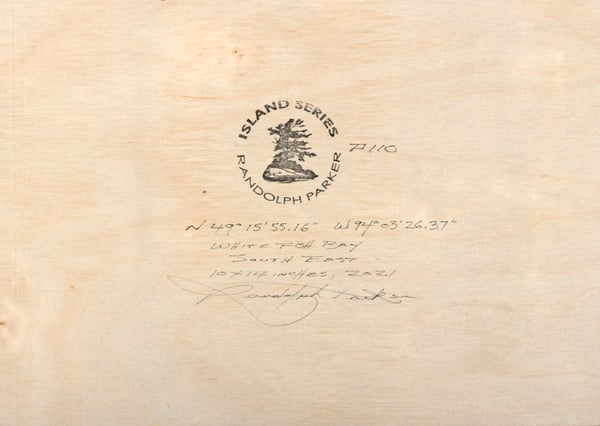 ISLAND SERIES
RANDOLPH PARKER
P110
N 49° 15' 55.16" W 94° 03' 26.37"
WHITE FISH BAY
SOUTH EAST
10 x 14 INCHES, 2021
Randolph Parker